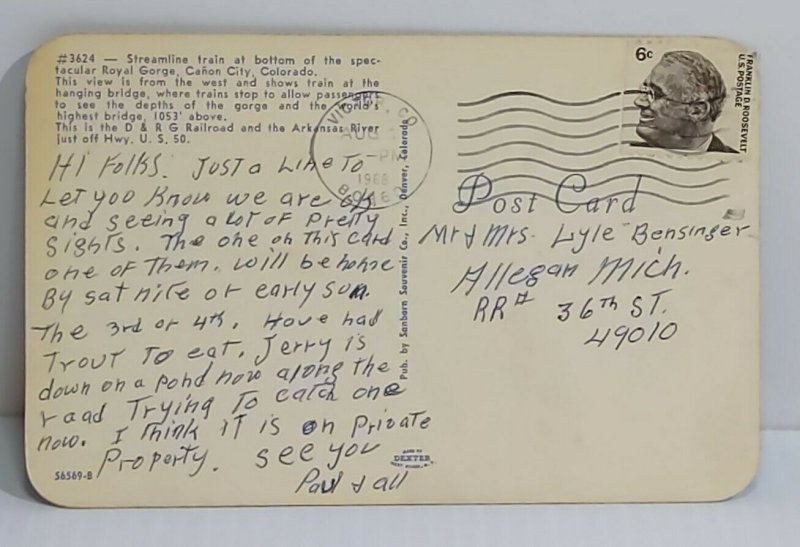 #3624 — Streamline train at bottom of the spec-
tacular Royal Gorge, Cañon City, Colorado.
This view is from the west and shows train at the
hanging bridge, where trains stop to allow passengers
to see the depths of the gorge and the world's
highest bridge, 1053' above.
This is the D & R G Railroad and the Arkansas River
just off Hwy. U. S. 50.
Hi Folks. Just a Line To
Let you Know we are ok
and seeing a lot of Pretty
Sights. The one on This card
one of Them. Will be home
By sat nite or early sun.
The 3rd or 4th. Have had
Trout To eat. Jerry is
down on a pond now along the
road Trying To catch one
now. I Think iT is on Private
Property. See you
Paul & all
56569-B
Pub. by Sanborn Souvenir Co., Inc., Denver, Colorado
MADE BY
DEXTER
WEST NYACK, N.Y.
CO
AUG
PM
1968
6c
FRANKLIN D. ROOSEVELT
U.S. POSTAGE
Post Card
Mr & Mrs. Lyle Bensinger
Allegan Mich.
RR# 36Th ST.
49010